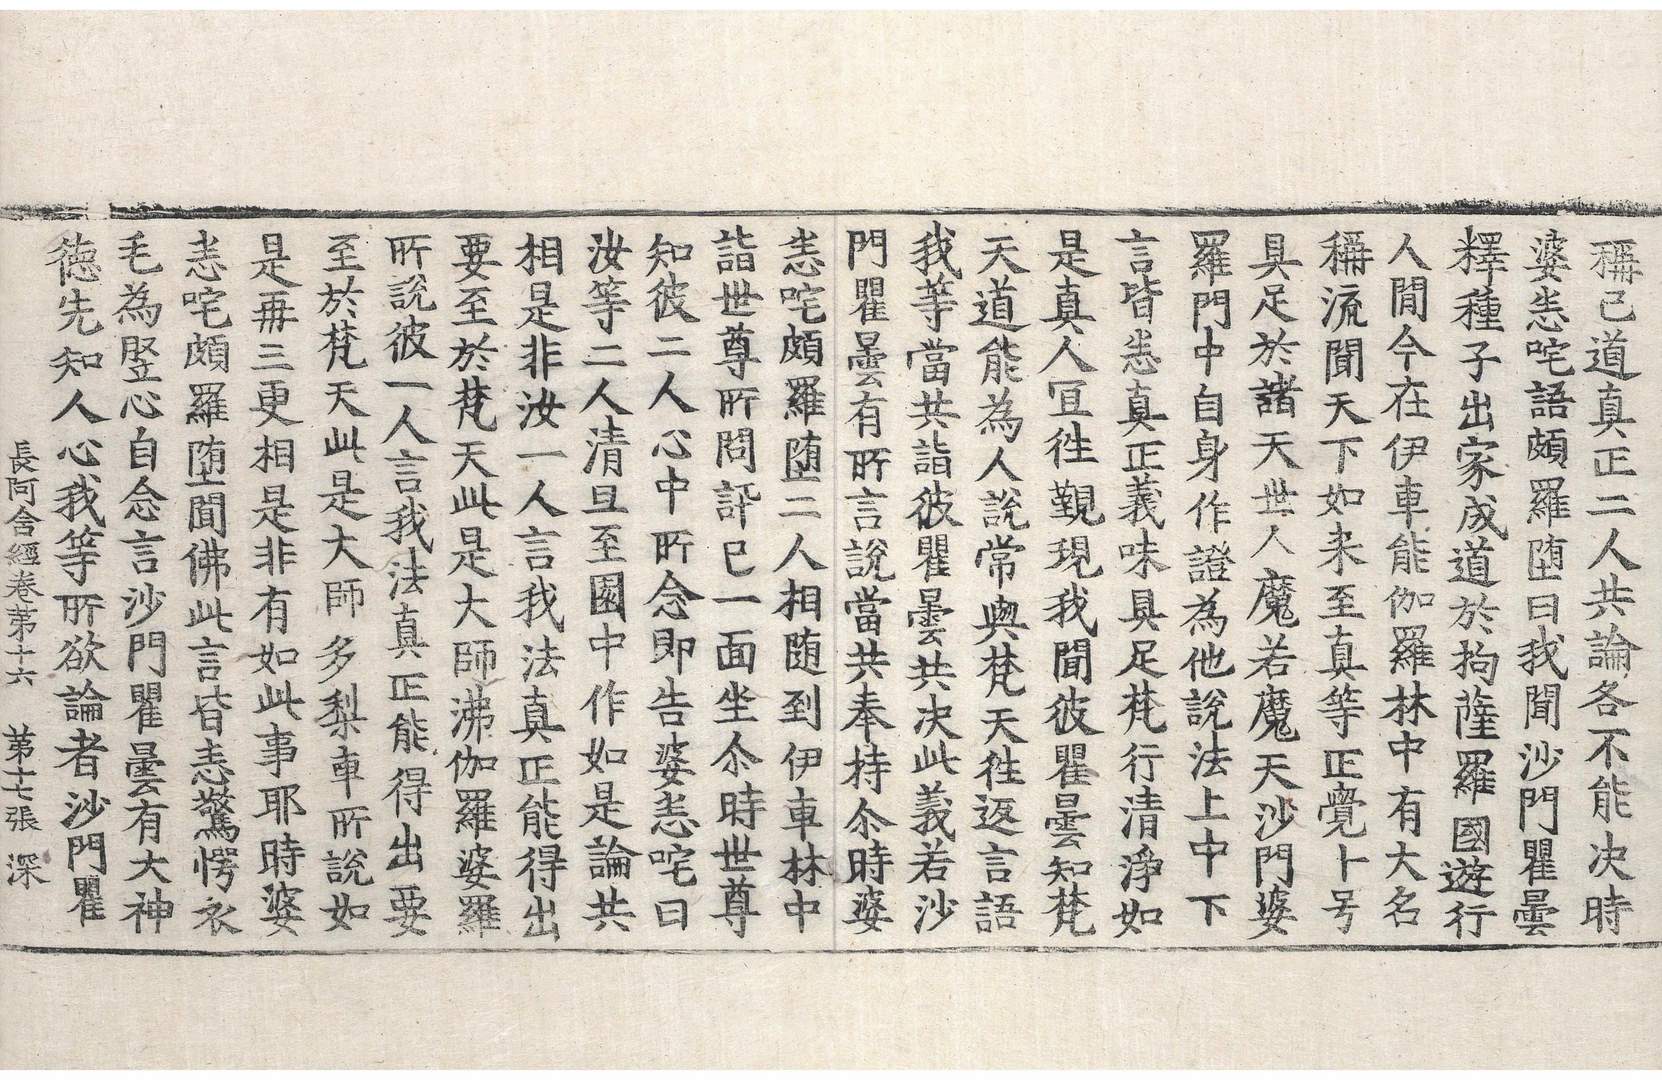 稱己道真正二人共論各不能决時
婆悉咤語頗羅堕曰我聞沙門瞿曇
釋種子出家成道於拘薩羅國遊行
人間今在伊車能伽羅林中有大名
稱流聞天下如来至真等正覺十号
具足於諸天世人魔若魔天沙門婆
羅門中自身作證為他說法上中下
言皆悉真正義味具足梵行清淨如
是真人冝徃覲現我聞彼瞿曇知梵
天道能為人說常與梵天徃返言語
我等當共詣彼瞿曇共决此義若沙
門瞿曇有所言說當共奉持尒時婆
悉咤頗羅堕二人相随到伊車林中
詣世尊所問訊已一面坐尒時世尊
知彼二人心中所念即告婆悉咤曰
汝等二人清旦至園中作如是論共
相是非汝一人言我法真正能得出
要至於梵天此是大師沸伽羅婆羅
所說彼一人言我法真正能得出要
至於梵天此是大師多梨車所說如
是再三更相是非有如此事耶時婆
悉咤頗羅堕聞佛此言皆悉驚愕衣
毛為竪心自念言沙門瞿曇有大神
徳先知人心我等所欲論者沙門瞿
長阿含經卷苐十六 苐十七張 深